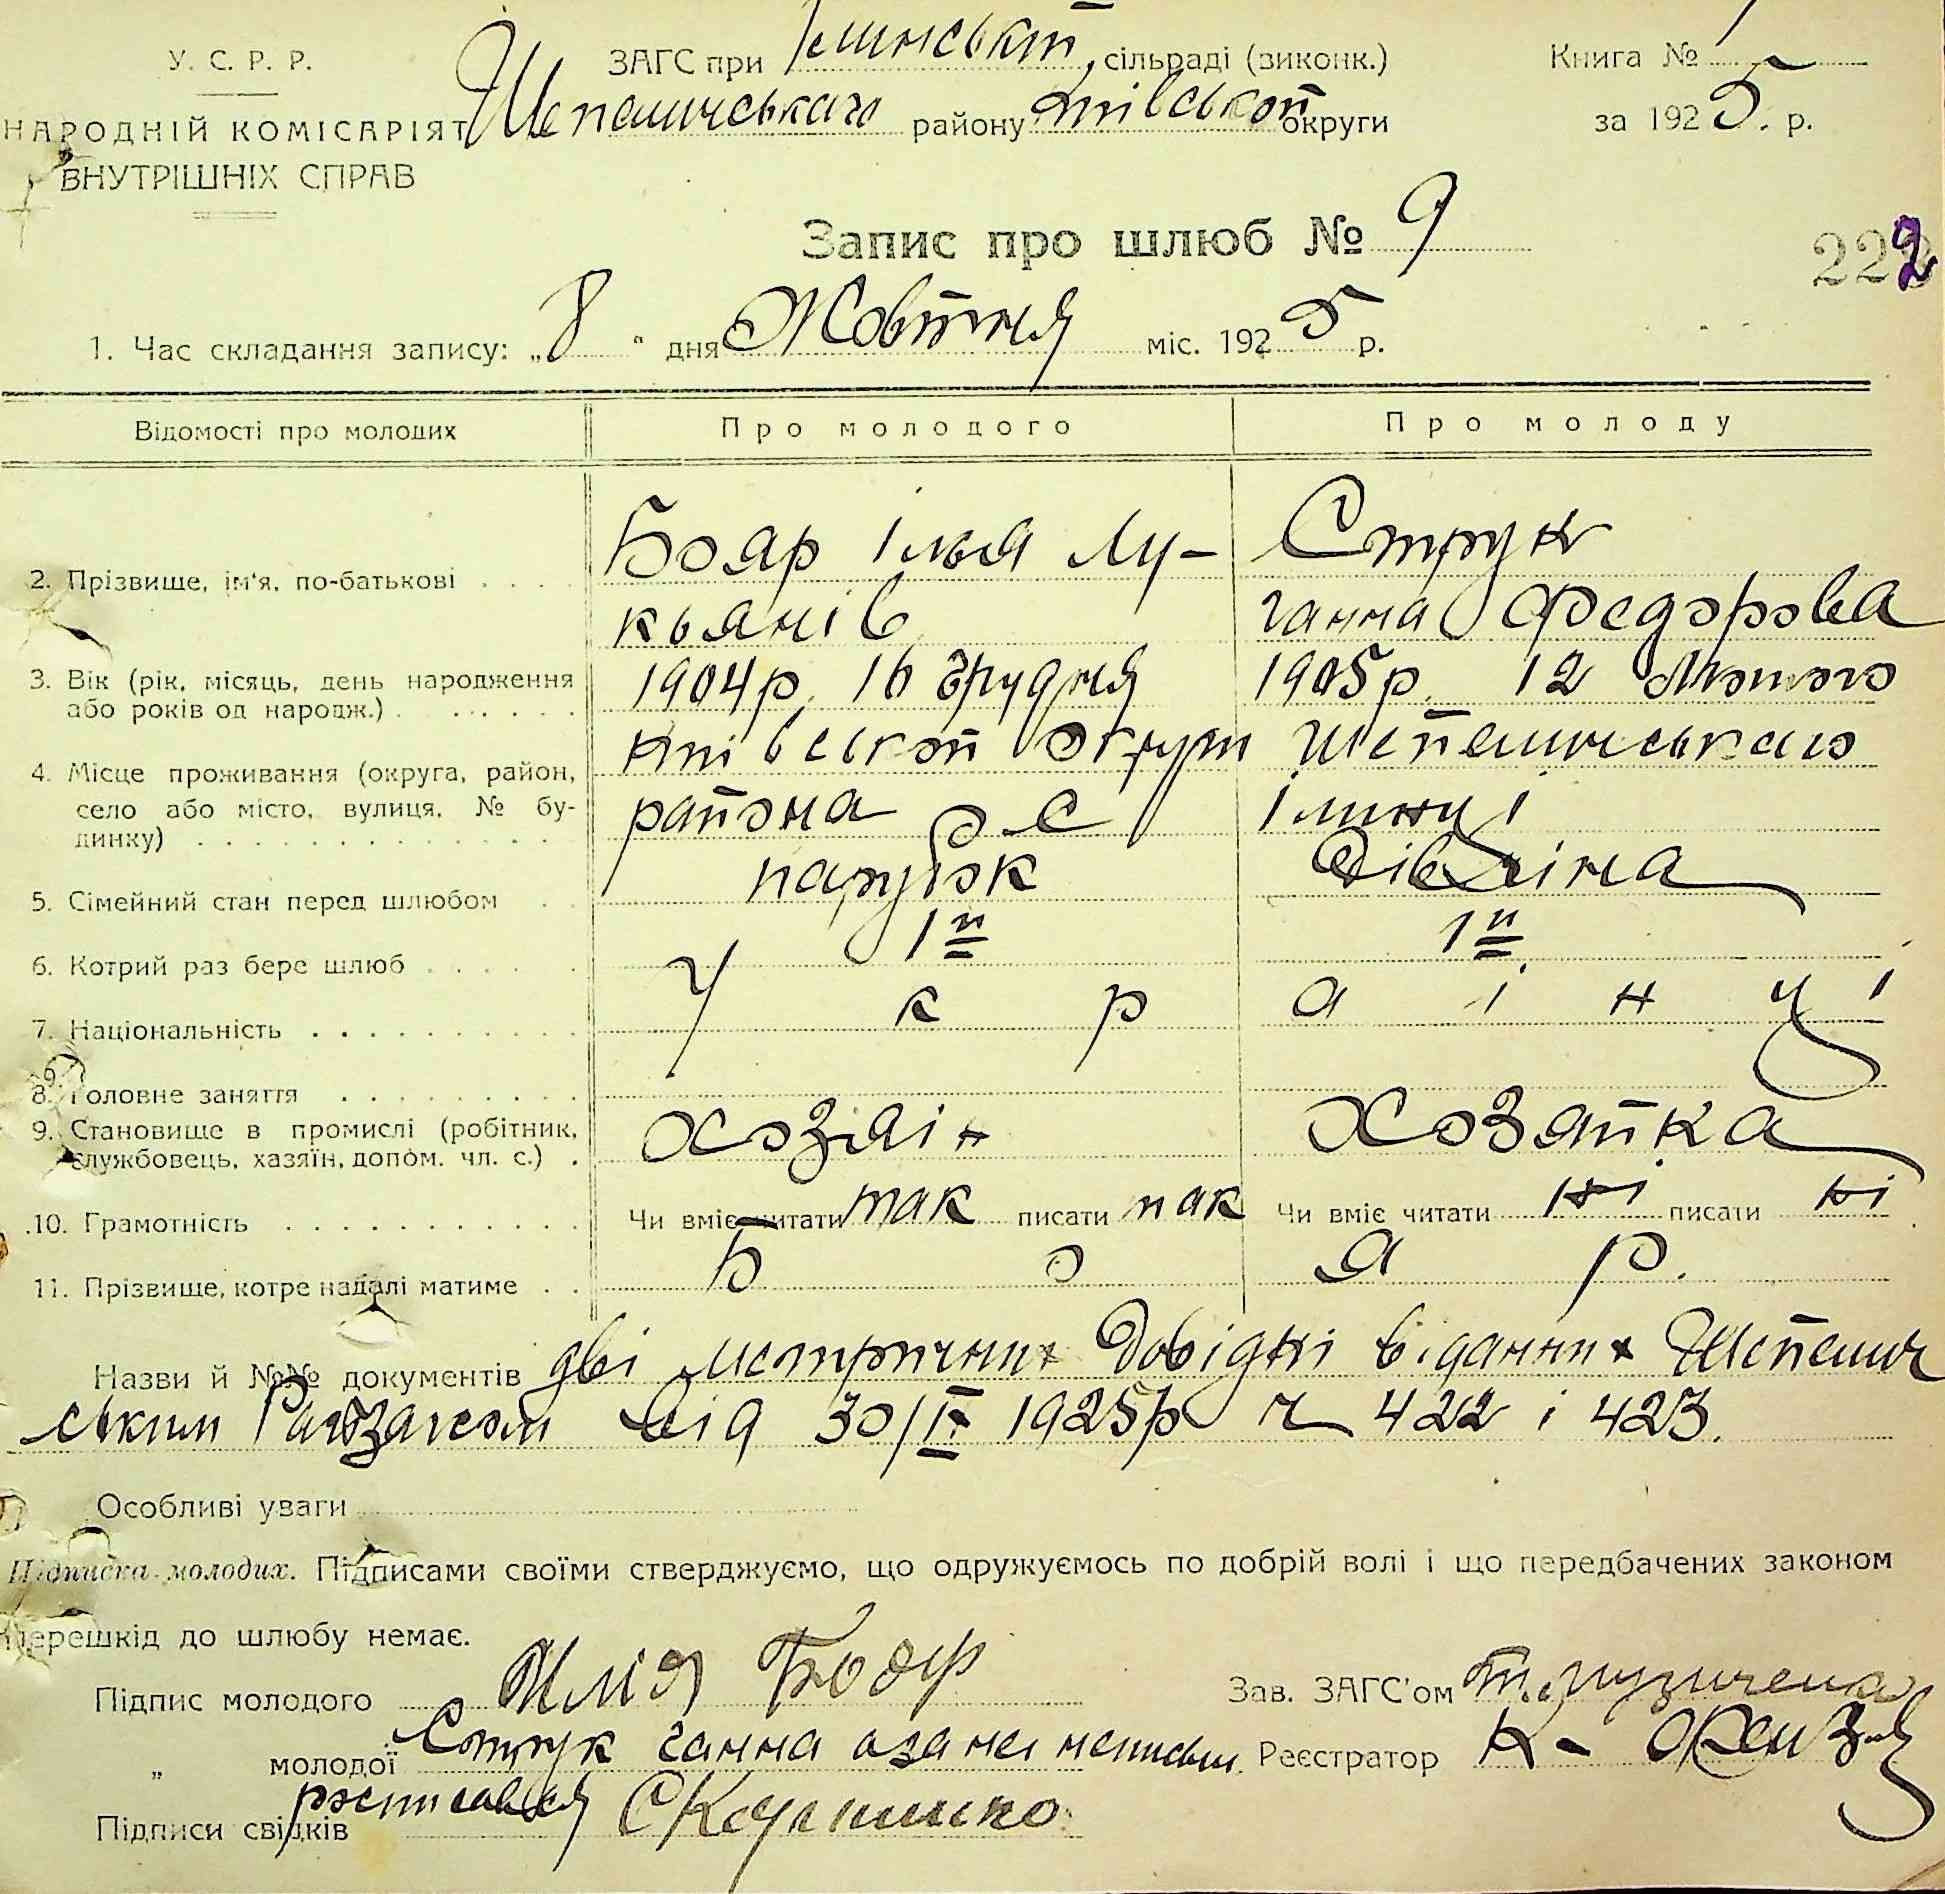 У. С. Р. Р.
НАРОДНІЙ КОМІСАРІЯТ
ВНУТРІШНІХ СПРАВ
ЗАГС при Ілинській сільраді (виконк.)
Шепеличського району Київської округи
Книга № 1
за 1925. р.
Запис про шлюб № 9
222
1. Час складання запису: „8" дня Жовтня міс. 1925 р.
Відомості про молодих Про молодого Про молоду
Бояр Ілья Лу- Струк
2. Прізвище, ім'я, по-батькові кьянів ганна Федорова
3. Вік (рік, місяць, день народження 1904р. 16 грудня 1905р. 12 Лютого
або років од народж.)
4. Місце проживання (округа, район, Київській округи Шепеличського
село або місто, вулиця, № бу- района с Ілинці
динку)
5. Сімейний стан перед шлюбом парубок Дівчіна
6. Котрий раз бере шлюб 1й 1й
7. Національність У к р а і н ц і
8. Головне заняття
9. Становище в промислі (робітник, хозяін хозяйка
службовець, хазяїн, допом. чл. с.)
10. Грамотність Чи вміє читати так писати так Чи вміє читати ні писати ні
11. Прізвище, котре надалі матиме Б о я р.
Назви й №№ документів дві метричних Довідкі віданних Шепелич
ським Райзагсом від 30/IX 1925р ч 422 і 423.
Особливі уваги
Підписка молодих. Підписами своїми стверджуємо, що одружуємось по добрій волі і що передбачених законом
перешкід до шлюбу немає.
Підпис молодого Илія Бояр Зав. ЗАГС'ом
„ молодої Струк ганна Реєстратор К-
росписався
Підписи свідків